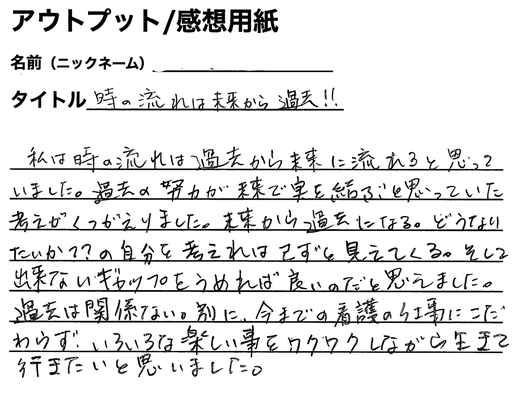 アウトプット/感想用紙
名前（ニックネーム）
タイトル 時の流れは未来から過去!!
私は時の流れは過去から未来に流れると思って
いました。過去の努力が未来で実を結ぶと思っていた
考えがくつがえりました。未来から過去になる。どうなり
たいか??の自分を考えれば自ずと見えてくる。そして
出来ないギャップをうめれば良いのだと思えました。
過去は関係ない。別に、今までの看護の仕事にこだ
わらず、いろいろな楽しい事をワクワクしながら生きて
行きたいと思いました。